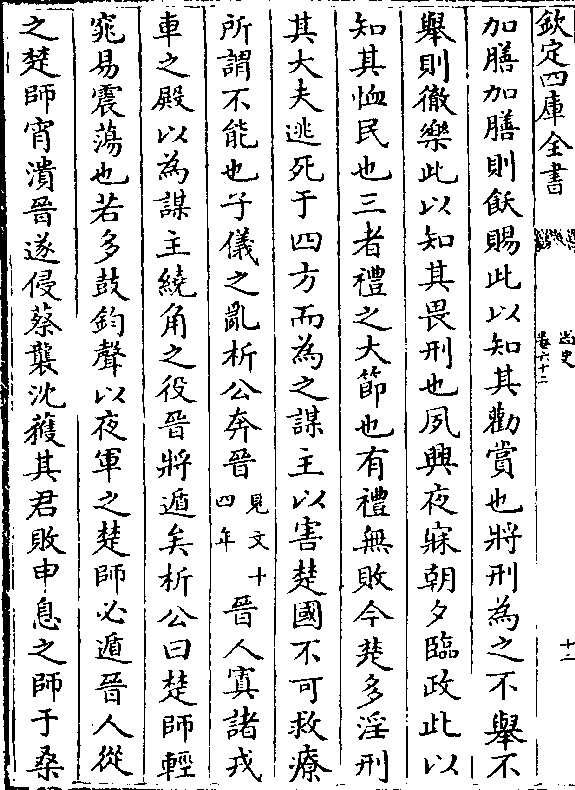 欽定四庫全書
尚史
卷六十二
十二
加膳加膳則飫賜此以知其勸賞也將刑為之不舉不
舉則徹樂此以知其畏刑也夙興夜寐朝夕臨政此以
知其恤民也三者禮之大節也有禮無敗今楚多淫刑
其大夫逃死于四方而為之謀主以害楚國不可救療
所謂不能也子儀之亂析公奔晉見文十四年晉人寘諸戎
車之殿以為謀主繞角之役晉將遁矣析公曰楚師輕
窕易震蕩也若多鼓鈞聲以夜軍之楚師必遁晉人從
之楚師宵潰晉遂侵蔡襲沈獲其君敗申息之師于桑